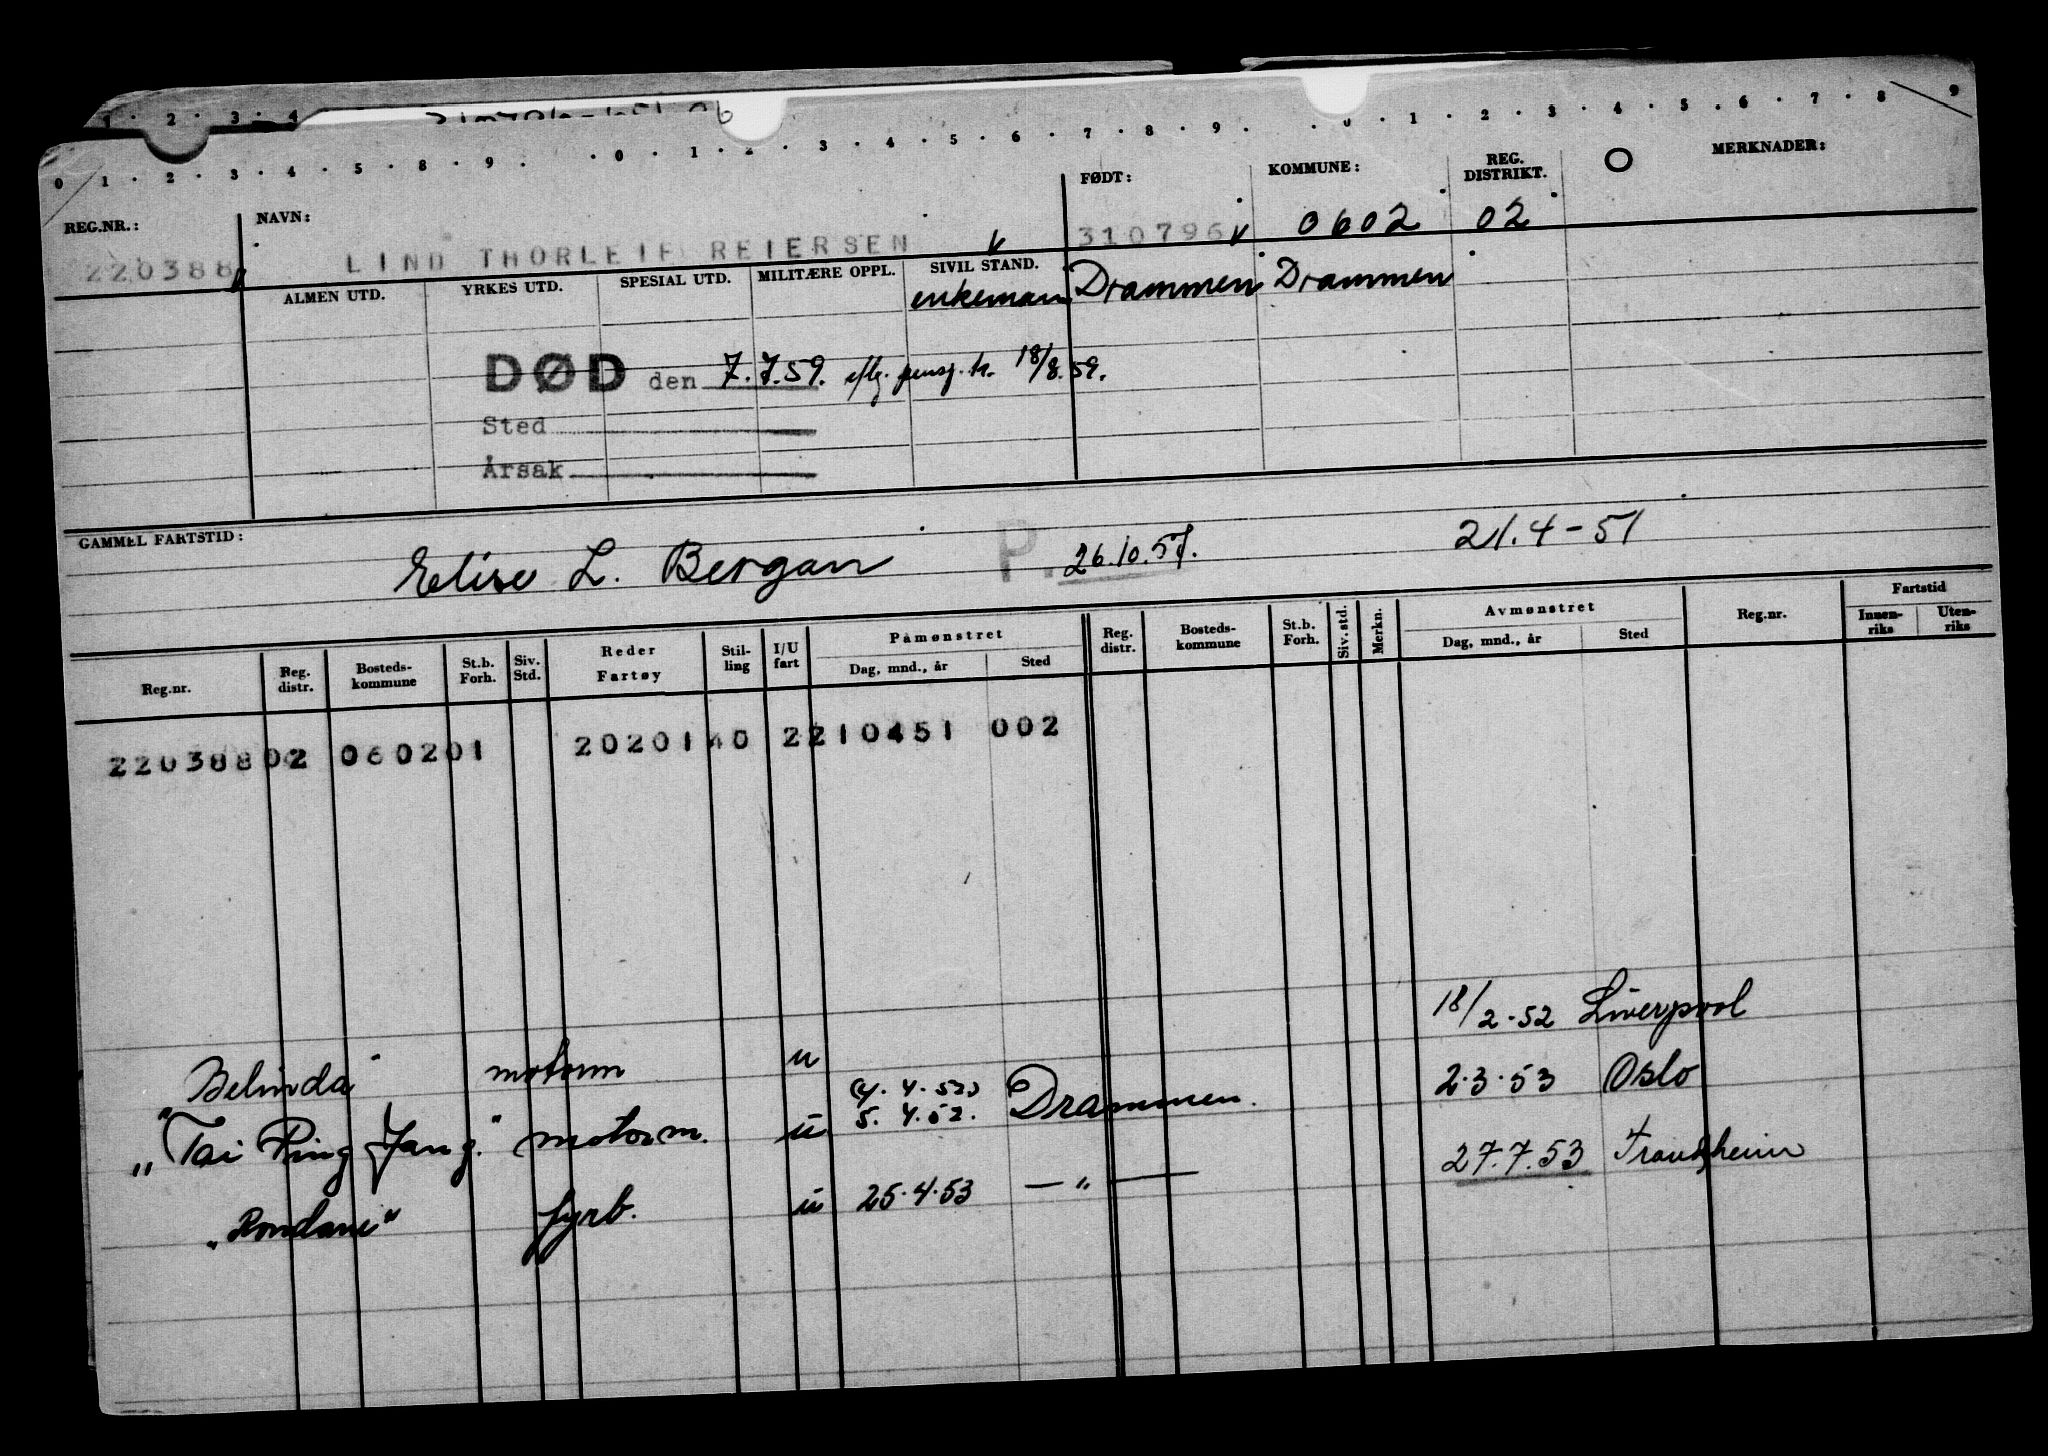 1 · 2 · 3 · 4
0 · 1 · 2 · 3 · 4 · 5 · 8 · 9 · · 0 · 1 · 2 · 3 · 4 · 5 · 6 · 7 · 8 · 9 · · 0 · 1 · 2 · 3 · 4 · 5 · 6 · 7 · 8 9
REG.NR.: NAVN: FØDT: KOMMUNE: REG. DISTRIKT. MERKNADER:
220388 LIND THORLEIF REIERSEN 310796 0602 02
ALMEN UTD. YRKES UTD. SPESIAL UTD. MILITÆRE OPPL. SIVIL STAND.
enkemann Drammen Drammen
DØD den 7.7.59. iflg. pensj. tr. 18/8.59.
Sted
Årsak
GAMMEL FARTSTID:
Elise L. Bergan P. 26.10.57. 21.4-51
Reg.nr. Reg. distr. Bosteds-kommune St.b. Forh. Siv. Std. Reder Fartøy Stil-ling I/U fart Påmønstret Dag, mnd., år Sted Reg. distr. Bosteds-kommune St.b. Forh. Siv. std. Merkn. Avmønstret Dag, mnd., år Sted Reg.nr. Fartstid Innen-riks Uten-riks
22038802 060201 2020140 2210451 002
"Belinda" motorm u 18/2-52 Liverpool
(4.4.52)
„Tai Ping Yang." motorm. u 5.4.52. Drammen. 2.3.53 Oslo
„Rondane" fyrb. u 25.4.53 — " — 27.7.53 Trondheim